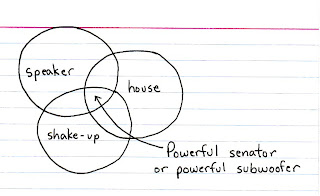 speaker
house
shake-up
Powerful senator
or powerful subwoofer